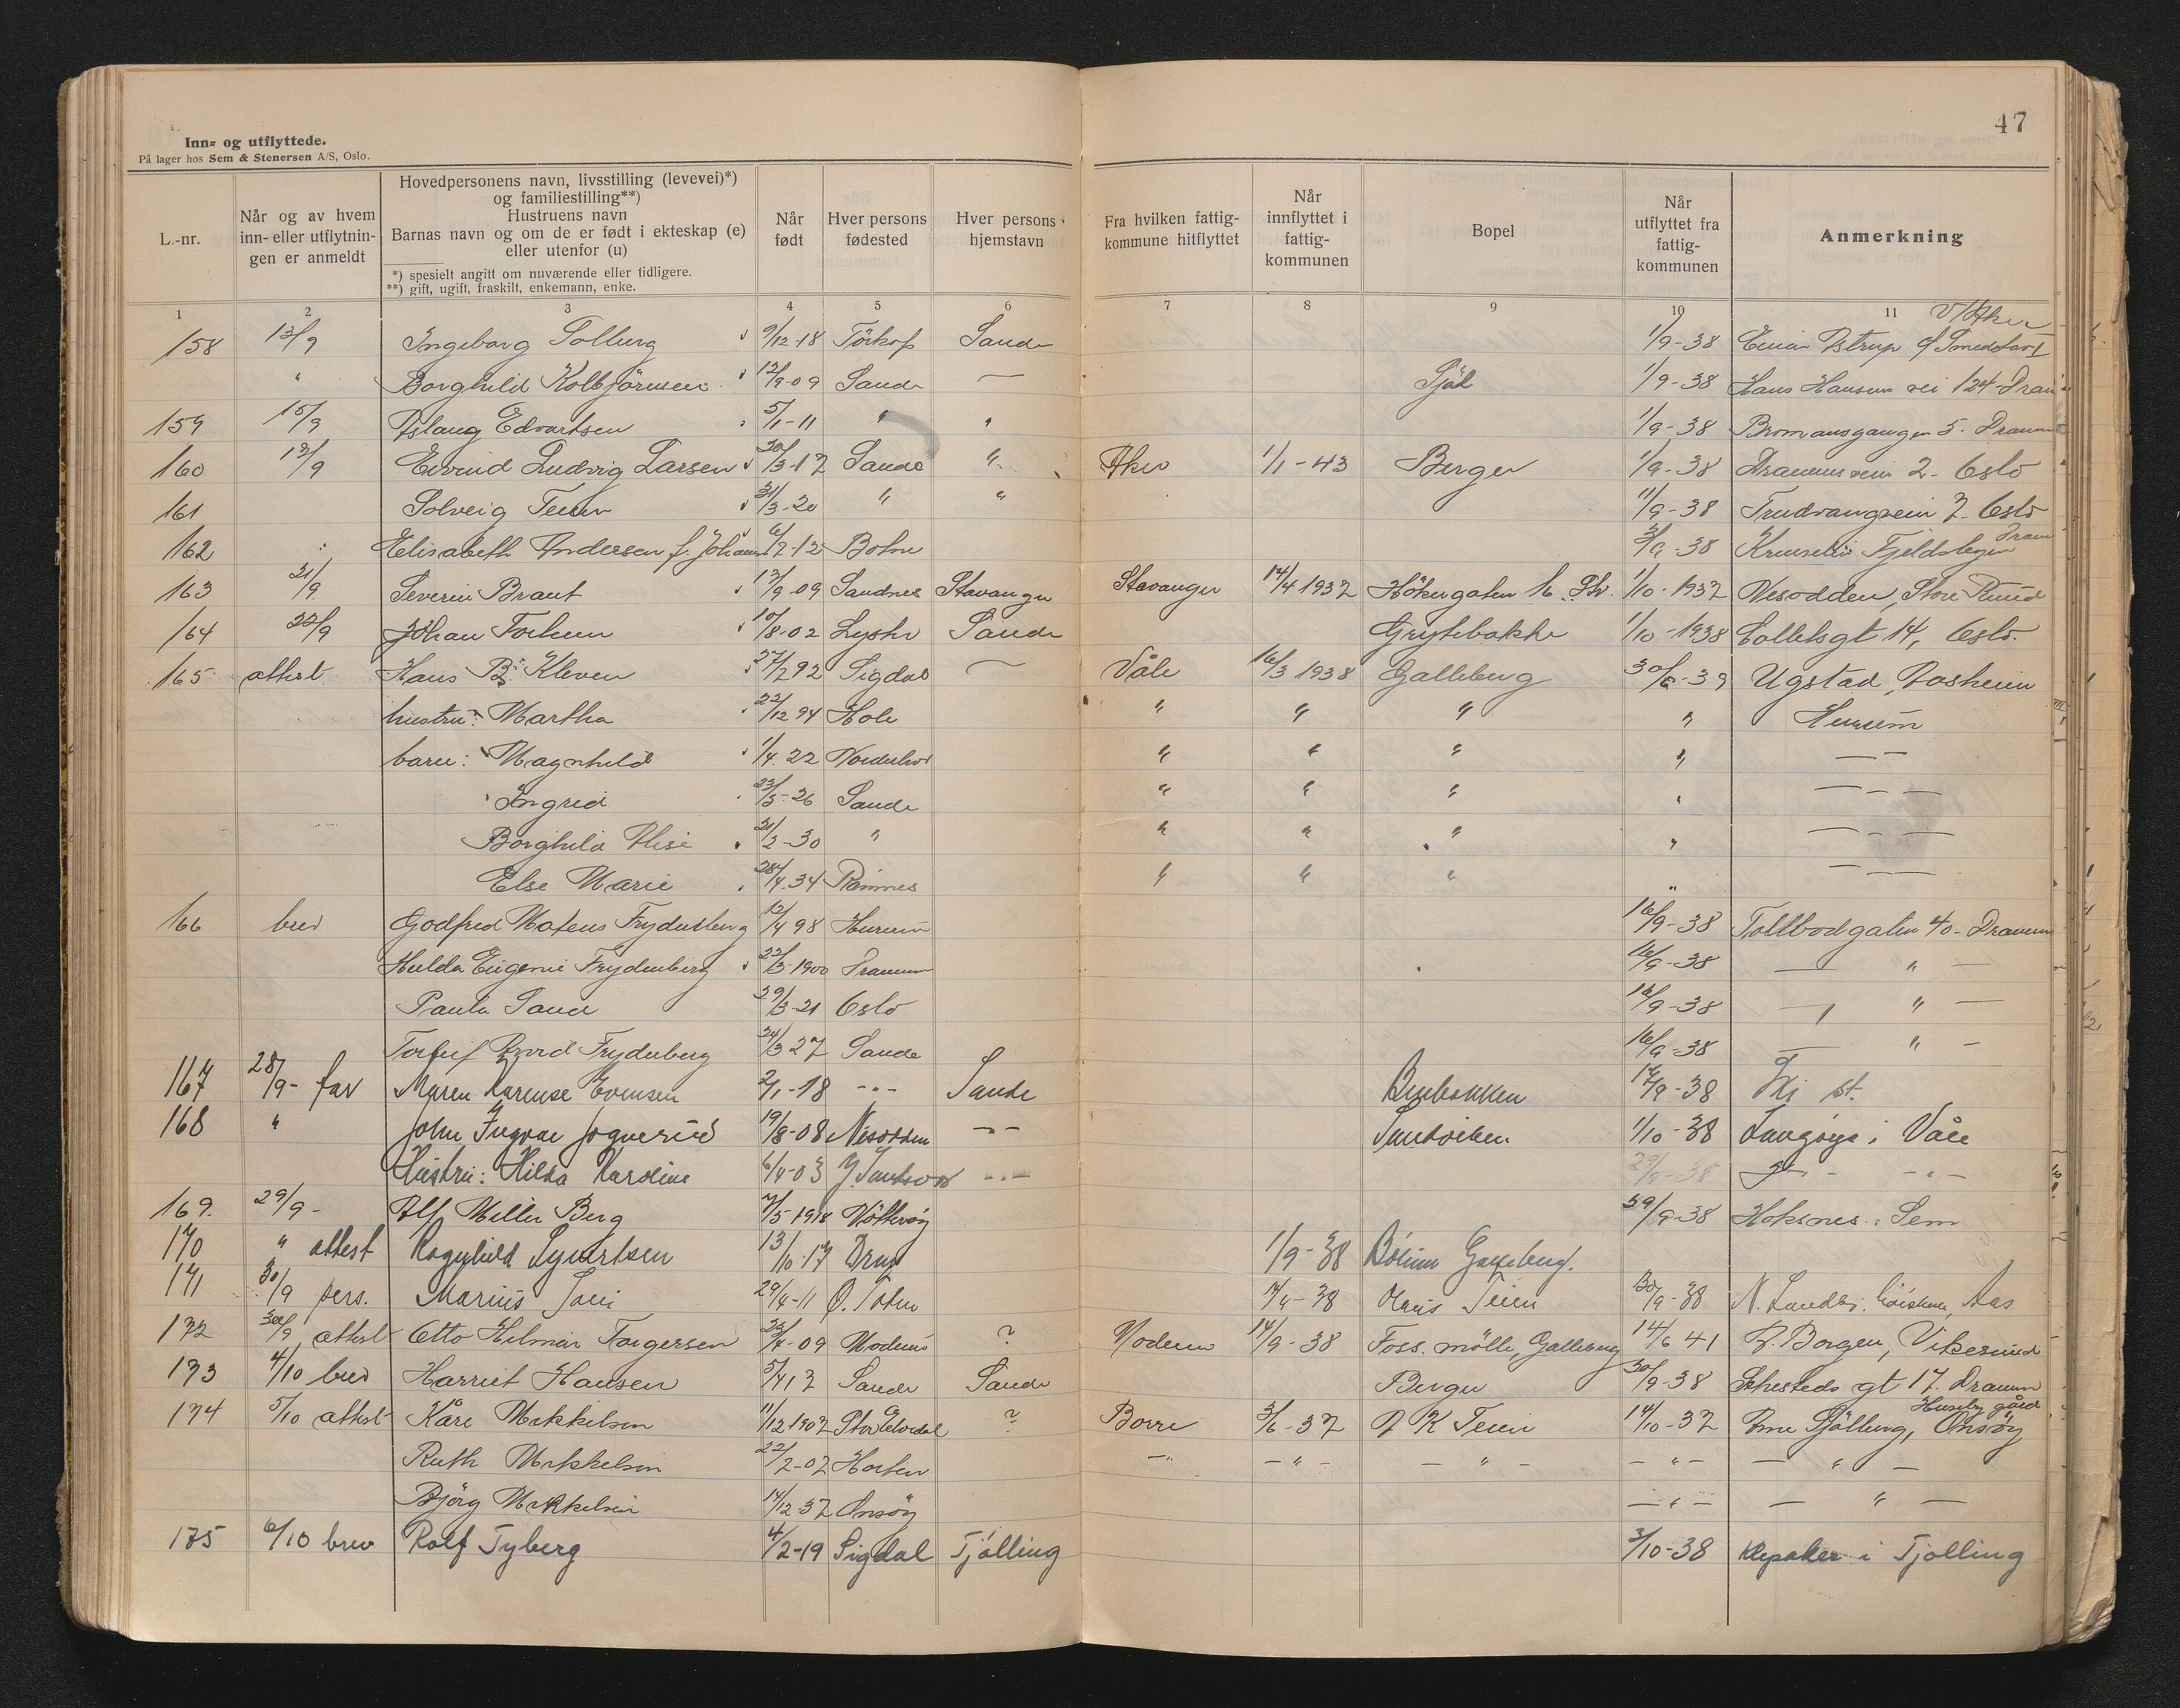 47
Inn- og utflyttede.
På lager hos Sem & Stenersen A/S, Oslo.
L.-nr.
Når og av hvem
inn- eller utflytnin-
gen er anmeldt
Hovedpersonens navn, livsstilling (levevei)*)
og familiestilling**)
Hustruens navn
Barnas navn og om de er født i ekteskap (e)
eller utenfor (u)
*) spesielt angitt om nuværende eller tidligere.
**) gift, ugift, fraskilt, enkemann, enke.
Når
født
Hver persons
fødested
Hver persons
hjemstavn
Fra hvilken fattig-
kommune hitflyttet
Når
innflyttet i
fattig-
kommunen
Bopel
Når
utflyttet fra
fattig-
kommunen
Anmerkning
1 2 3 4 5 6 7 8 9 10 11
V/Aker
158 13/9 Ingeborg Solberg 9/12-18 Sande 1/9-38
" Borghild Kolbjörnsen 12/9-09 Sande — 1/9-38 Hans Hansens vei 124 Dram
159 15/9 Aslaug Edvartsen 5/1-11 " " 1/9-38 5. Dramm
160 13/9 Eivind Ludvig Larsen 30/3-17 Sande " Aker 1/1-43 Berger 1/9-38 Drammensvein 2. Oslo
161 Solveig Teien 31/3-20 " " 11/9-38 Trudvangvein 7. Oslo
162 Elisabeth Andersen f. 12 Botne 3/9-38 Dram
163 21/9 Severin Braut 13/9-09 Sandnes Stavanger Stavanger 14/4 1937 16 1/10-1937 Nesodden, Store
164 22/9 Johan Fortun 10/8-02 Lyster Sande Grytebakke 1/10-1938 Colletsgt 14, Oslo.
165 attest Hans B. Kleven 27/7 92 Sigdal — Våle 16/3 1938 Galleberg 30/6-39 Ugstad, Åosheim
hustru: Martha 22/12 94 Hole " " " " Hurum
barn: Magnhild 1/4 22 Norderhov " " " " — —
Ingrid 23/5-26 Sande " " " " — — —
Borghild Alise 21/2-30 " " " " " — — —
Else Marie 28/4 34 Ramnes " " " — — —
166 brev Godfred Mateus Frydenberg 12/4 98 Hurum 16/9-38 Tollbodgaten 40 - Dramm
Hulda Eugenie Frydenberg 22/3-1900 Drammen 16/9-38 — " —
Paula Sand 29/3-21 Oslo 16/9-38 — " —
Torleif Frydenberg 24/3 27 Sande 16/9-38 — " —
167 28/9- far Maren Karense Evensen 2/1-18 -"- Sande 17/9-38 st.
168 " John Ingvar 19/8-08 Nesodden -"- Sandviken 1/10-38 i Våle
Hustru: Hilda Karoline 6/4-03 -"- 29/9-38 -"-
169. 29/9- Alf Meller Berg 7/5-1918 Nötteröy 29/9-38 Hoksnes i Sem
170 " attest Ragnhild Syvertsen 13/10-17 Drm 1/9-38 Galleberg.
171 30/9 pers. Marius 29/4-11 Ø. Toten 38 Teien 30/9-38 Aas
172 30/9 attest Otto Hilmar Torgersen 23/4-09 Modum ? Modum 14/9-38 Foss mölle, Galleberg 14/6 41 Borgen, Vikersund
173 4/10 brev Harriet Hansen 5/4 17 Sande Sande Berger 30/9-38 Sehesteds gt 17. Dramm
Huseby gård
174 5/10 attest Kåre Mikkelsen 11/12 1907 Store Elvedal ? Borre 3/6-37 A K Teien 14/10-37 Arne Sjölberg, Onsöy
Ruth Mikkelsen 22/2-07 Horten —"— —"— — " — —"— — " —
Björg Mikkelsen 14/12-37 Onsöy —"— — " —
175 6/10 brev Rolf Tyberg 4/2-19 Sigdal Tjölling 3/10-38 Klepaker i Tjölling